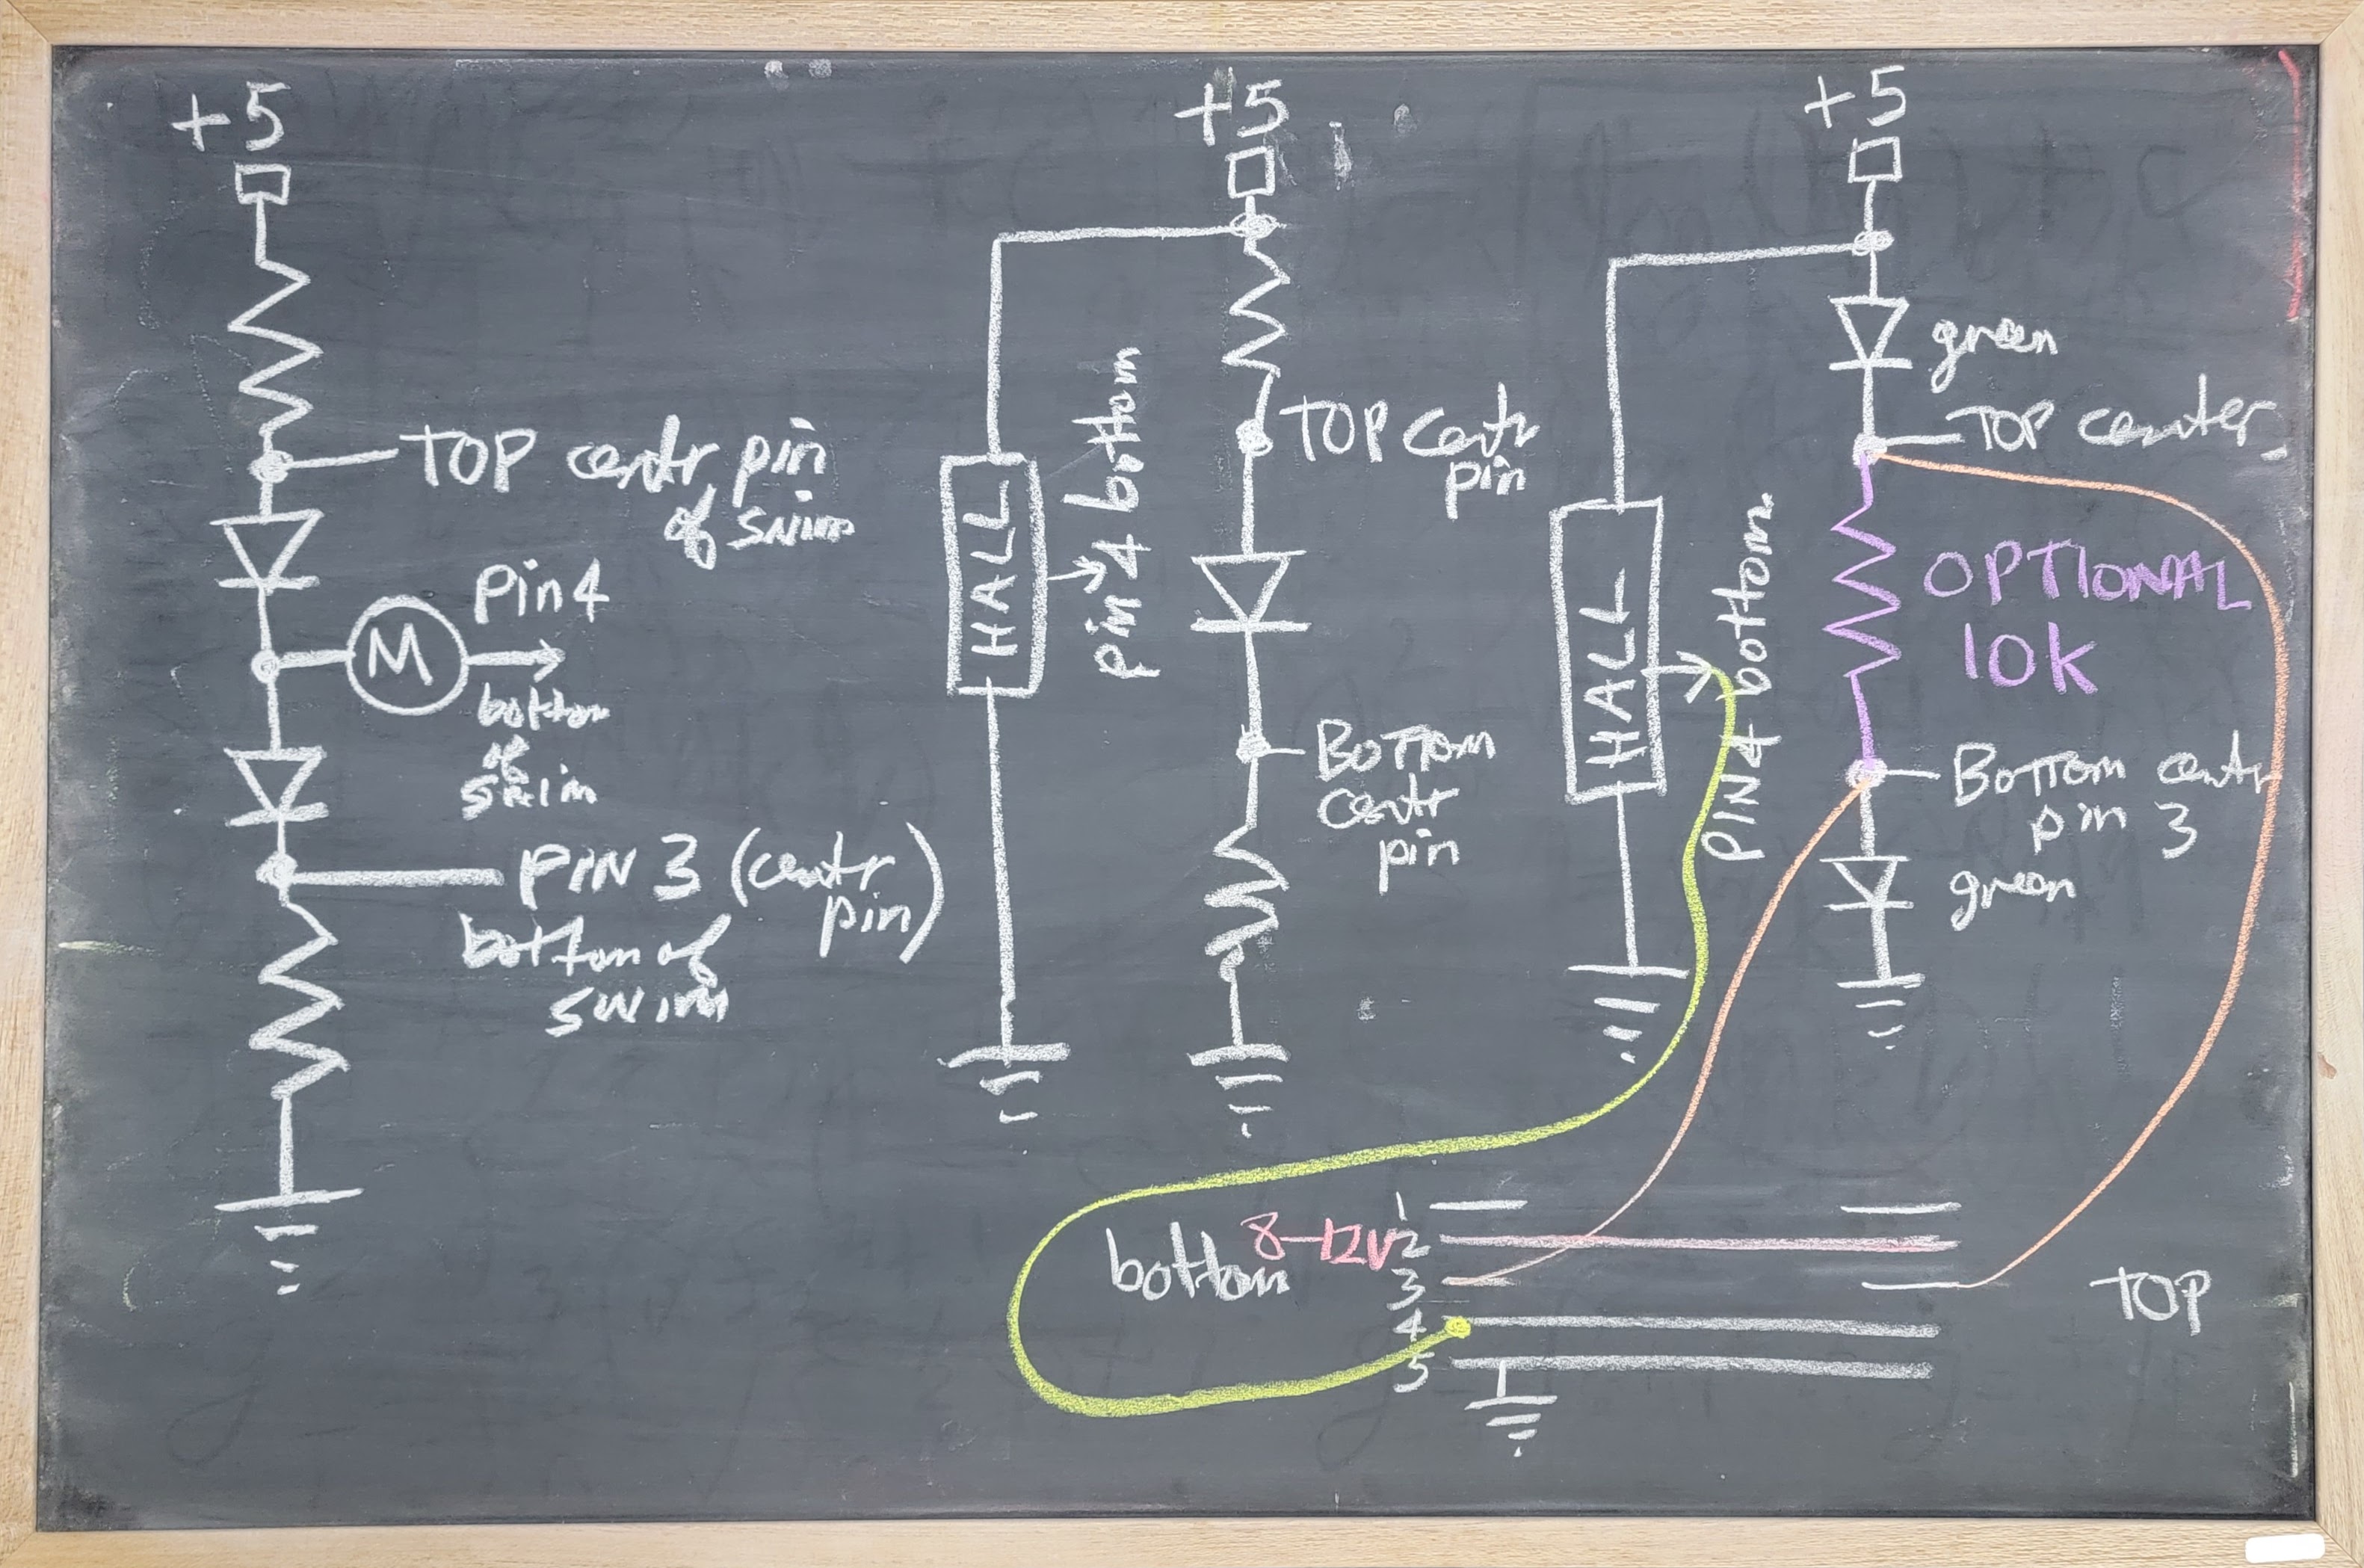 +5
TOP centr pin
of swim
Pin4
bottom
of
swim
PIN 3 (centr
pin)
bottom of
swim
M
+5
HALL
pin 4 bottom
TOP centr
pin
BOTTOM
centr
pin
+5
HALL
PIN4 bottom
green
TOP center
OPTIONAL
10K
BOTTOM centr
pin 3
green
bottom
8-12V
1
2
3
4
5
TOP